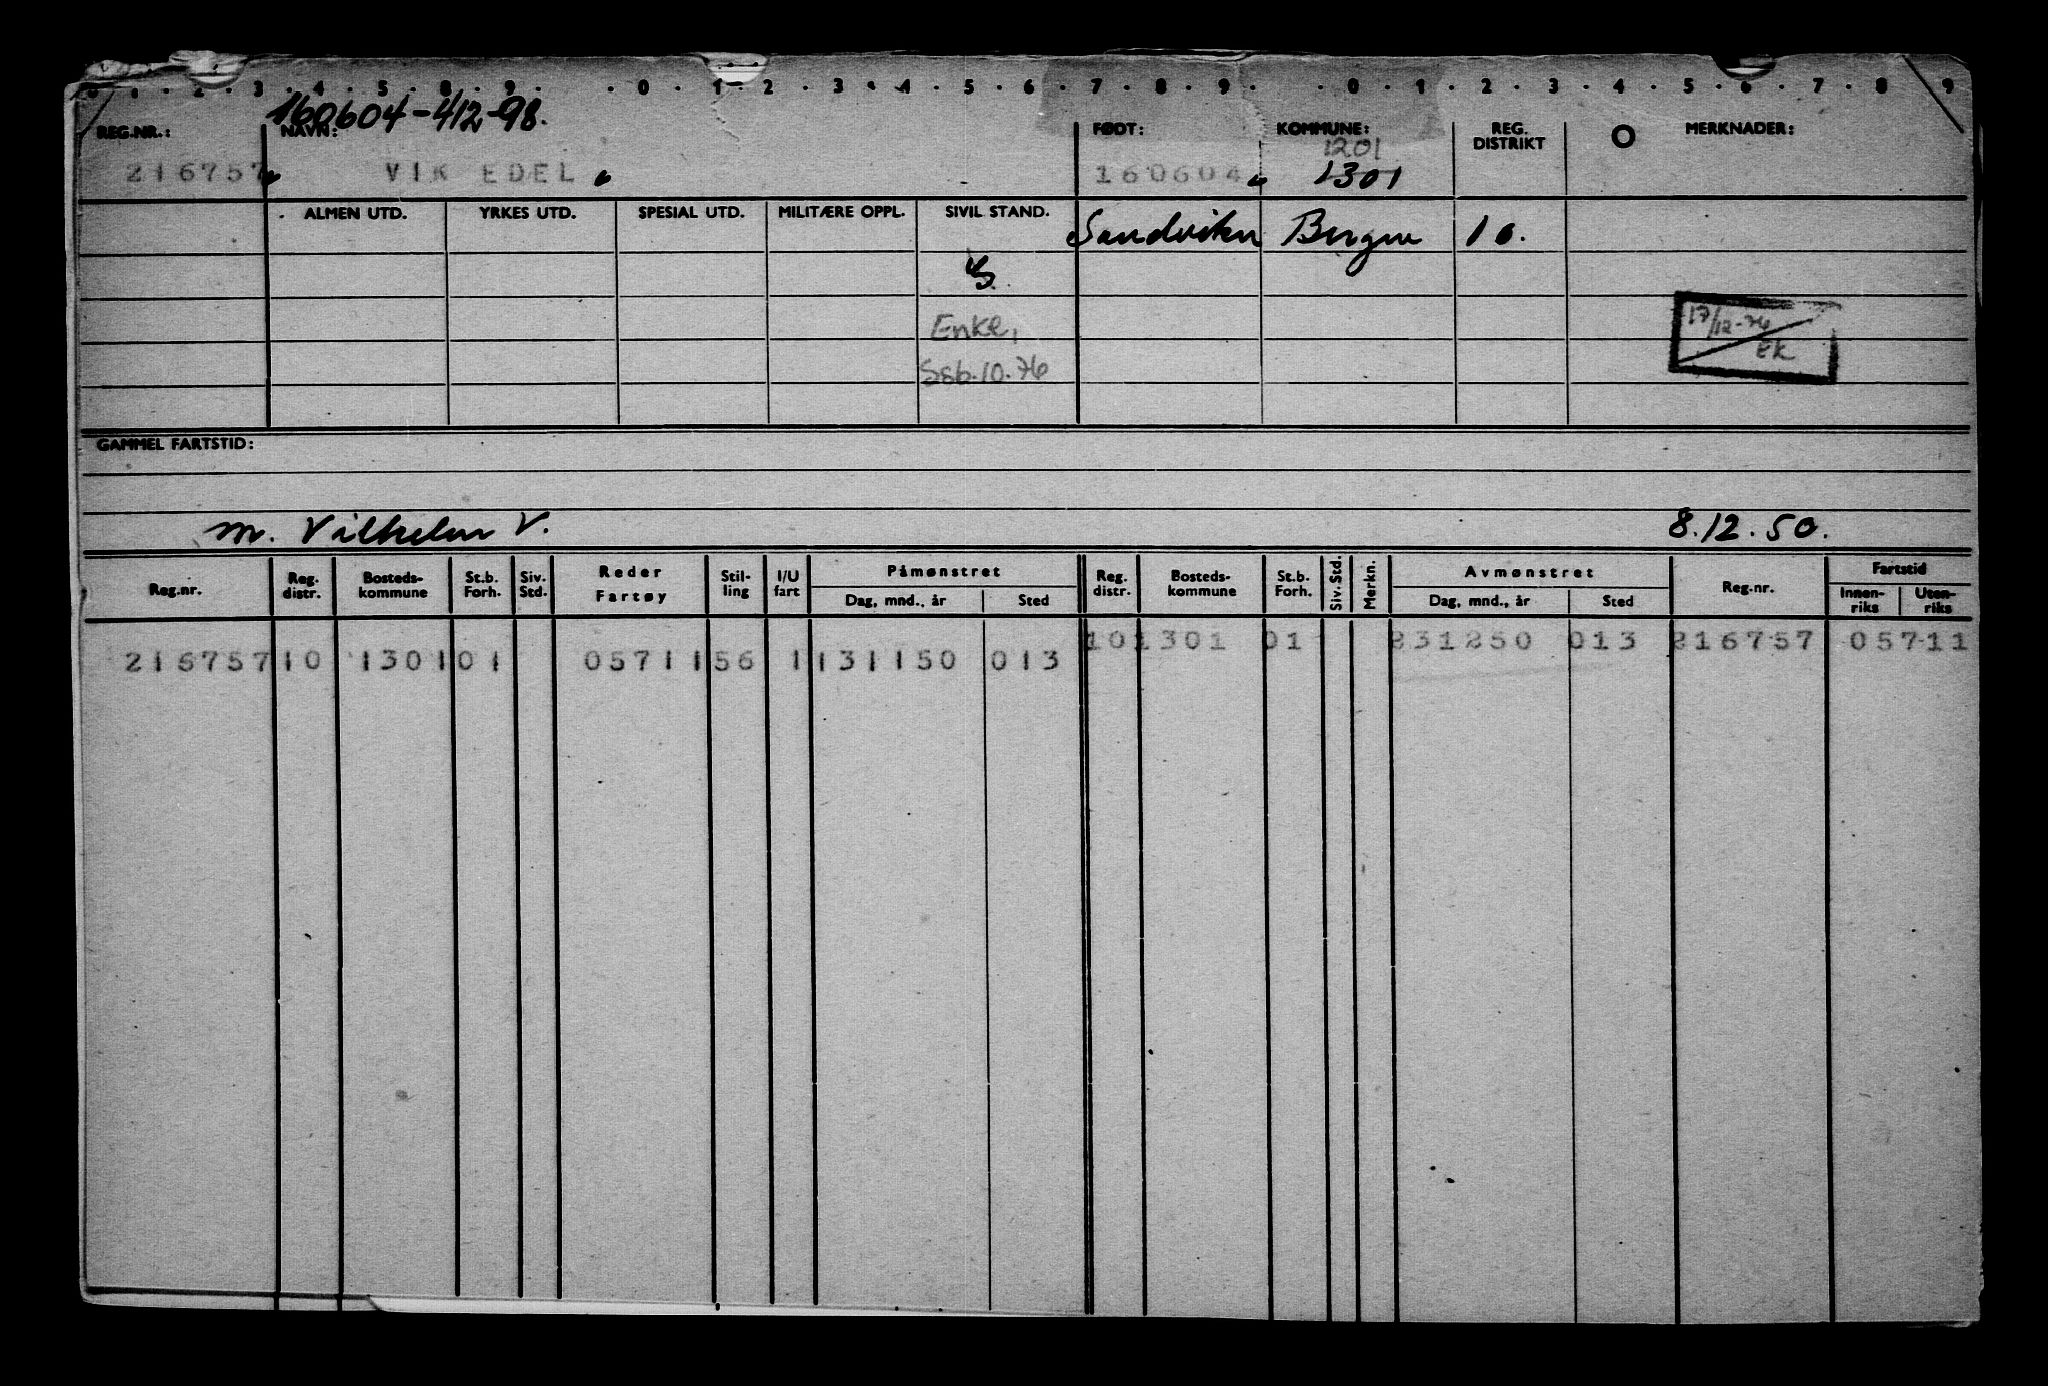 0 . 1 . 2 . 3 . 4 . 5 . 8 . 9 . . 0 . . 1 . 2 . 3 . 4 . 5 . 6 . 7 . 8 . 9 . . 0 . 1 . 2 . 3 . 4 . 5 . 6 . 7 . 8 . 9
160604-412-98.
REG.NR.: NAVN: FØDT: KOMMUNE: REG. DISTRIKT MERKNADER:
1201
216757 VIK EDEL 160604 1301
ALMEN UTD. YRKES UTD. SPESIAL UTD. MILITÆRE OPPL. SIVIL STAND. Sandviken Bergen 10.
Enke,
17/12-76
EK
Ssb.10.76
GAMMEL FARTSTID:
m. Vilhelm V. 8.12.50.
Reg.nr. Reg. distr. Bosteds-kommune St.b. Forh. Siv. Std. Reder Fartøy Stil-ling I/U fart Påmønstret Dag, mnd., år Sted Reg. distr. Bosteds-kommune St.b. Forh. Siv.Std. Merkn. Avmønstret Dag, mnd., år Sted Reg.nr. Fartstid Innen-riks Uten-riks
101301 01 231250 013 216757 05711
216757 10 1301 01 05711 56 1 131150 013